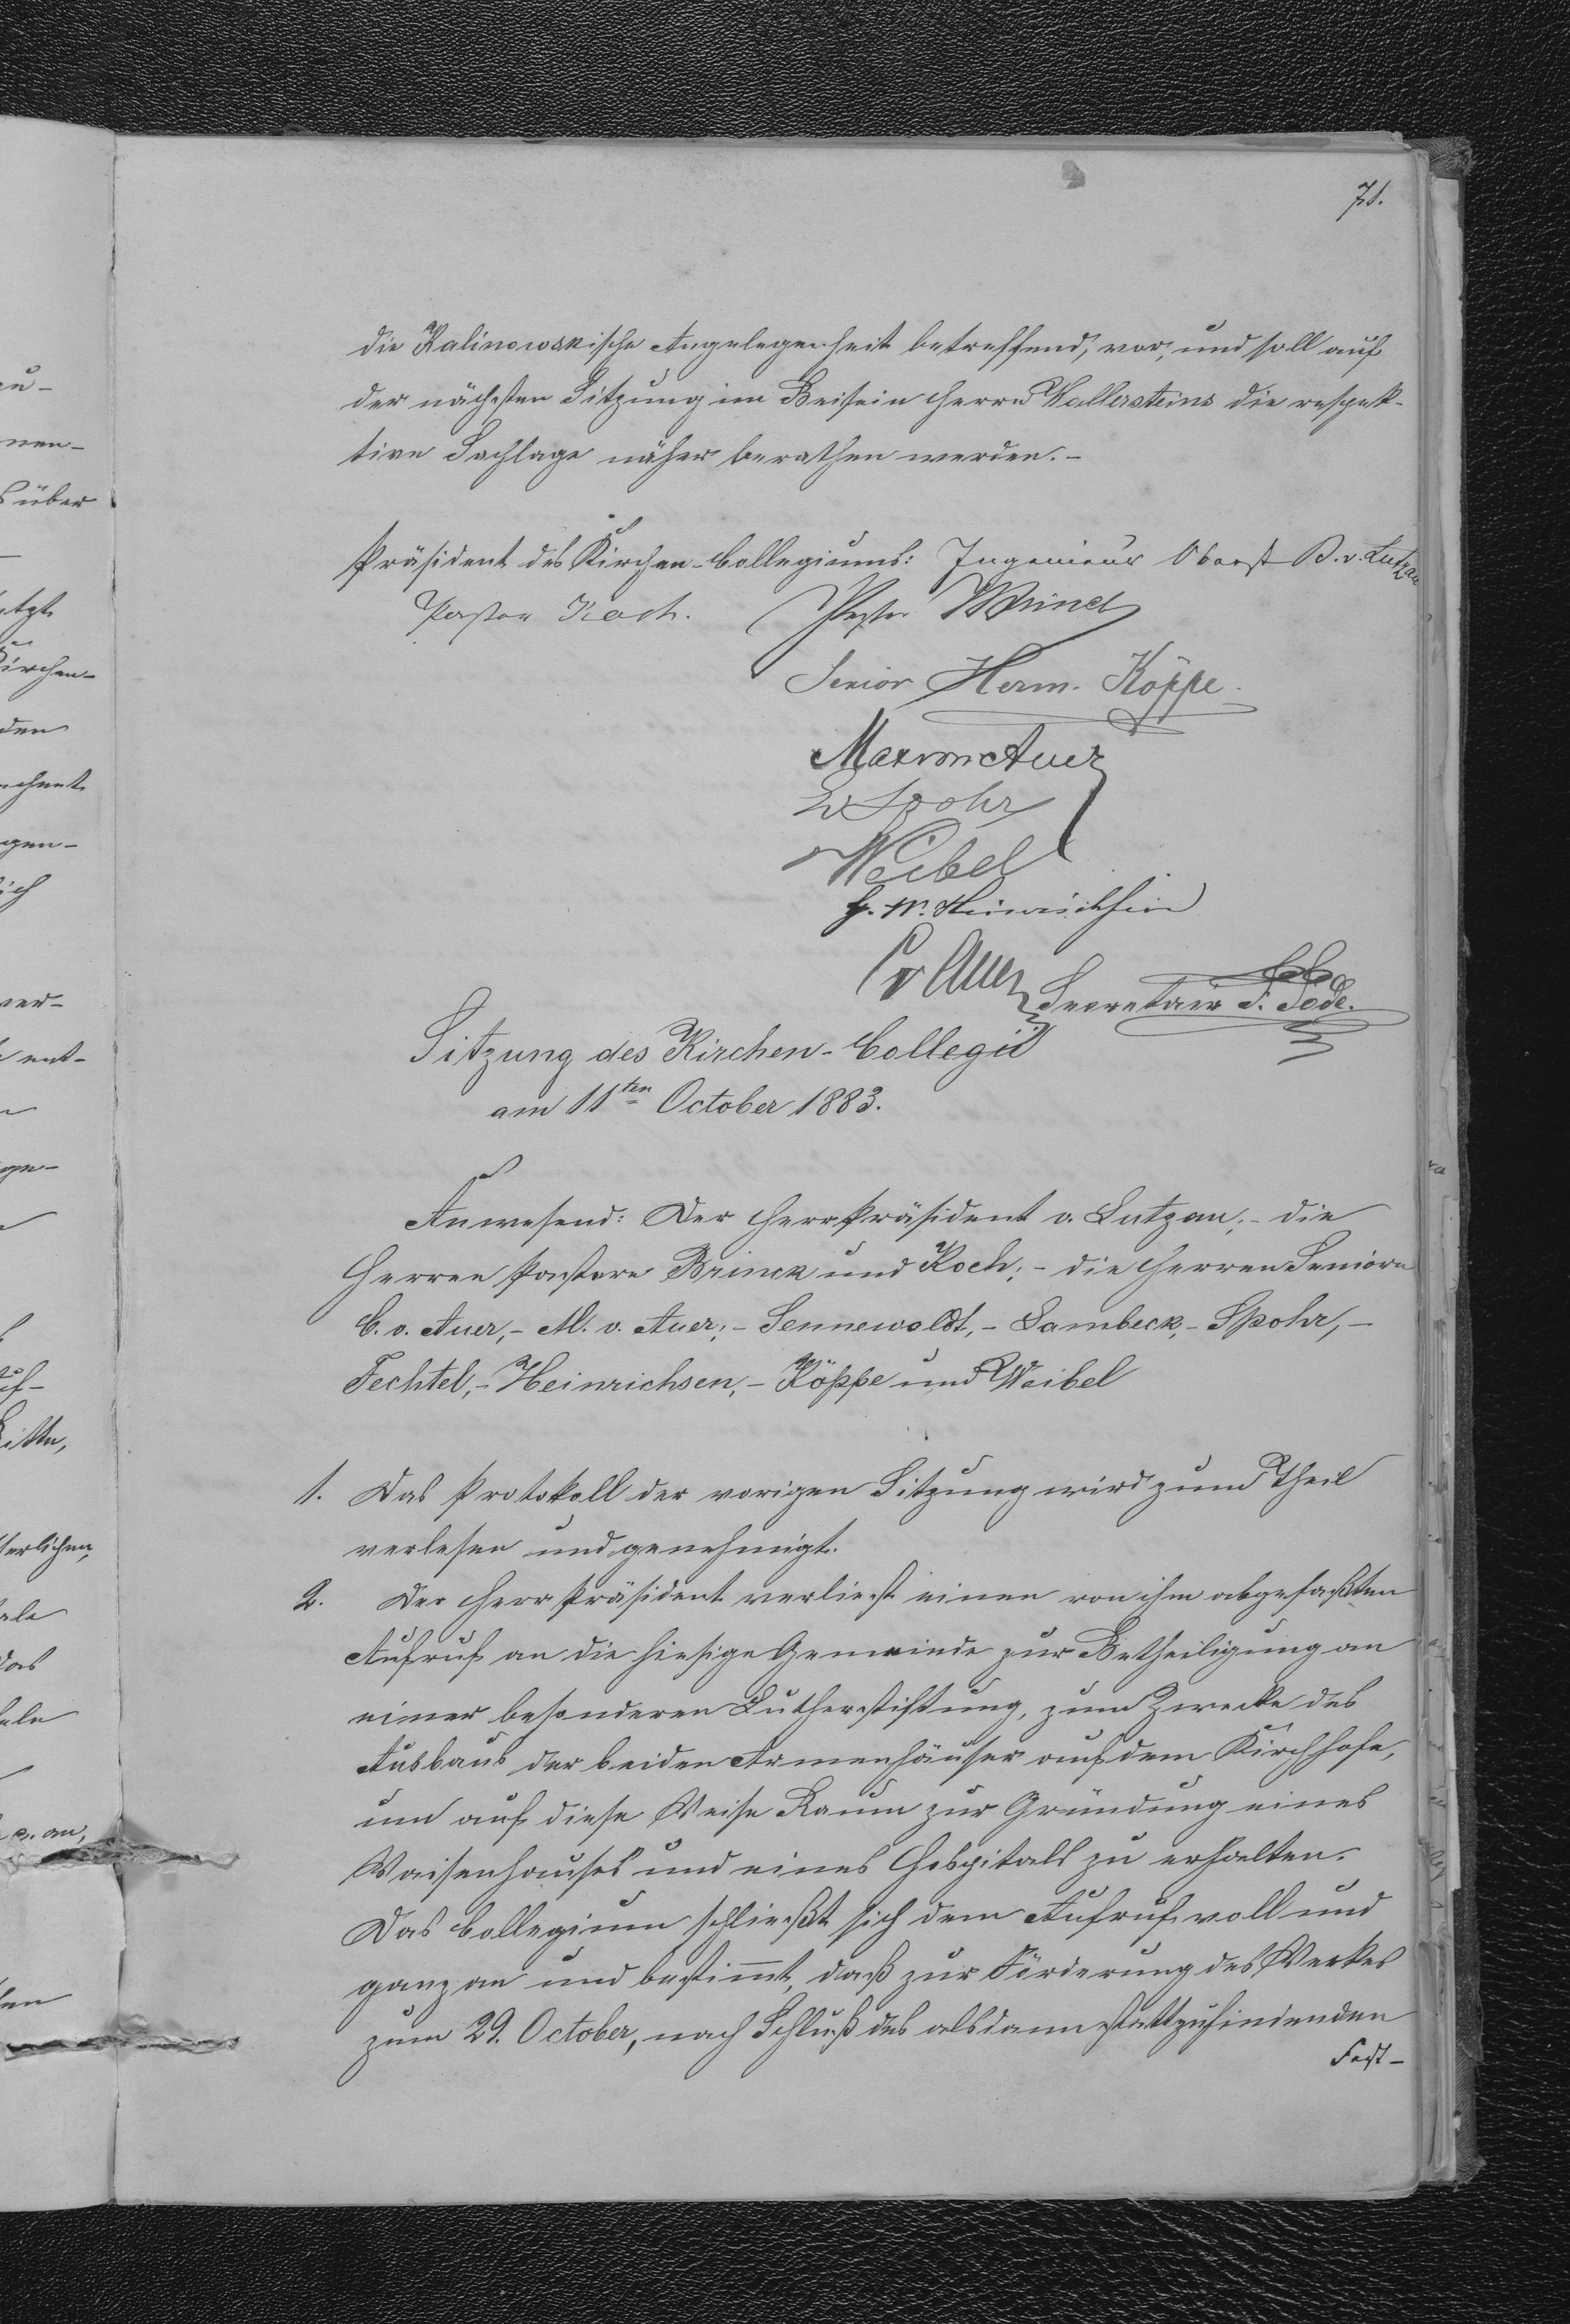 71.
die Kalinowskische Angelegenheit betreffend, vor, und soll auf
der nächsten Sitzung im Beisein Herrn Wallersteins die respek-
tive Sachlage näher berathen werden. -
Präsident des Kirchen-Collegiums: Ingenieur Oberst B. v. Lutzau
Pastor Koch. Pastor Brinck
Senior Herm. Köppe.
Max von Auer
Spohr
Weibel
Heinrichsen
C v Auer
Secretair T. Tode.
Sitzung des Kirchen-Collegii
am 11ten October 1883.
Anwesend: Der Herr Präsident v. Lutzau; - die
Herren Pastore Brinck und Koch; - die Herren Seniore
C. v. Auer, - M. v. Auer; - Sennewoldt, - Lambeck, - Spohr, -
Fechtel, - Heinrichsen, - Köppe und Weibel
1. Das Protokoll der vorigen Sitzung wird zum Theil
verlesen und genehmigt.
2. Der Herr Präsident verliest einen von ihm abgefaßten
Aufruf an die hiesige Gemeinde zur Betheiligung an
einer besonderen Lutherstiftung, zum Zwecke des
Ausbaus der beiden Armenhäuser auf dem Kirchhofe,
um auf diese Weise Raum zur Gründung eines
Waisenhauses und eines Hospitals zu erhalten.
Das Collegium schließt sich dem Aufruf voll und
ganz an und bestimt, daß zur Förderung des Werkes
zum 29. October, nach Schluß des alsdann stattzufindenden
Fest-